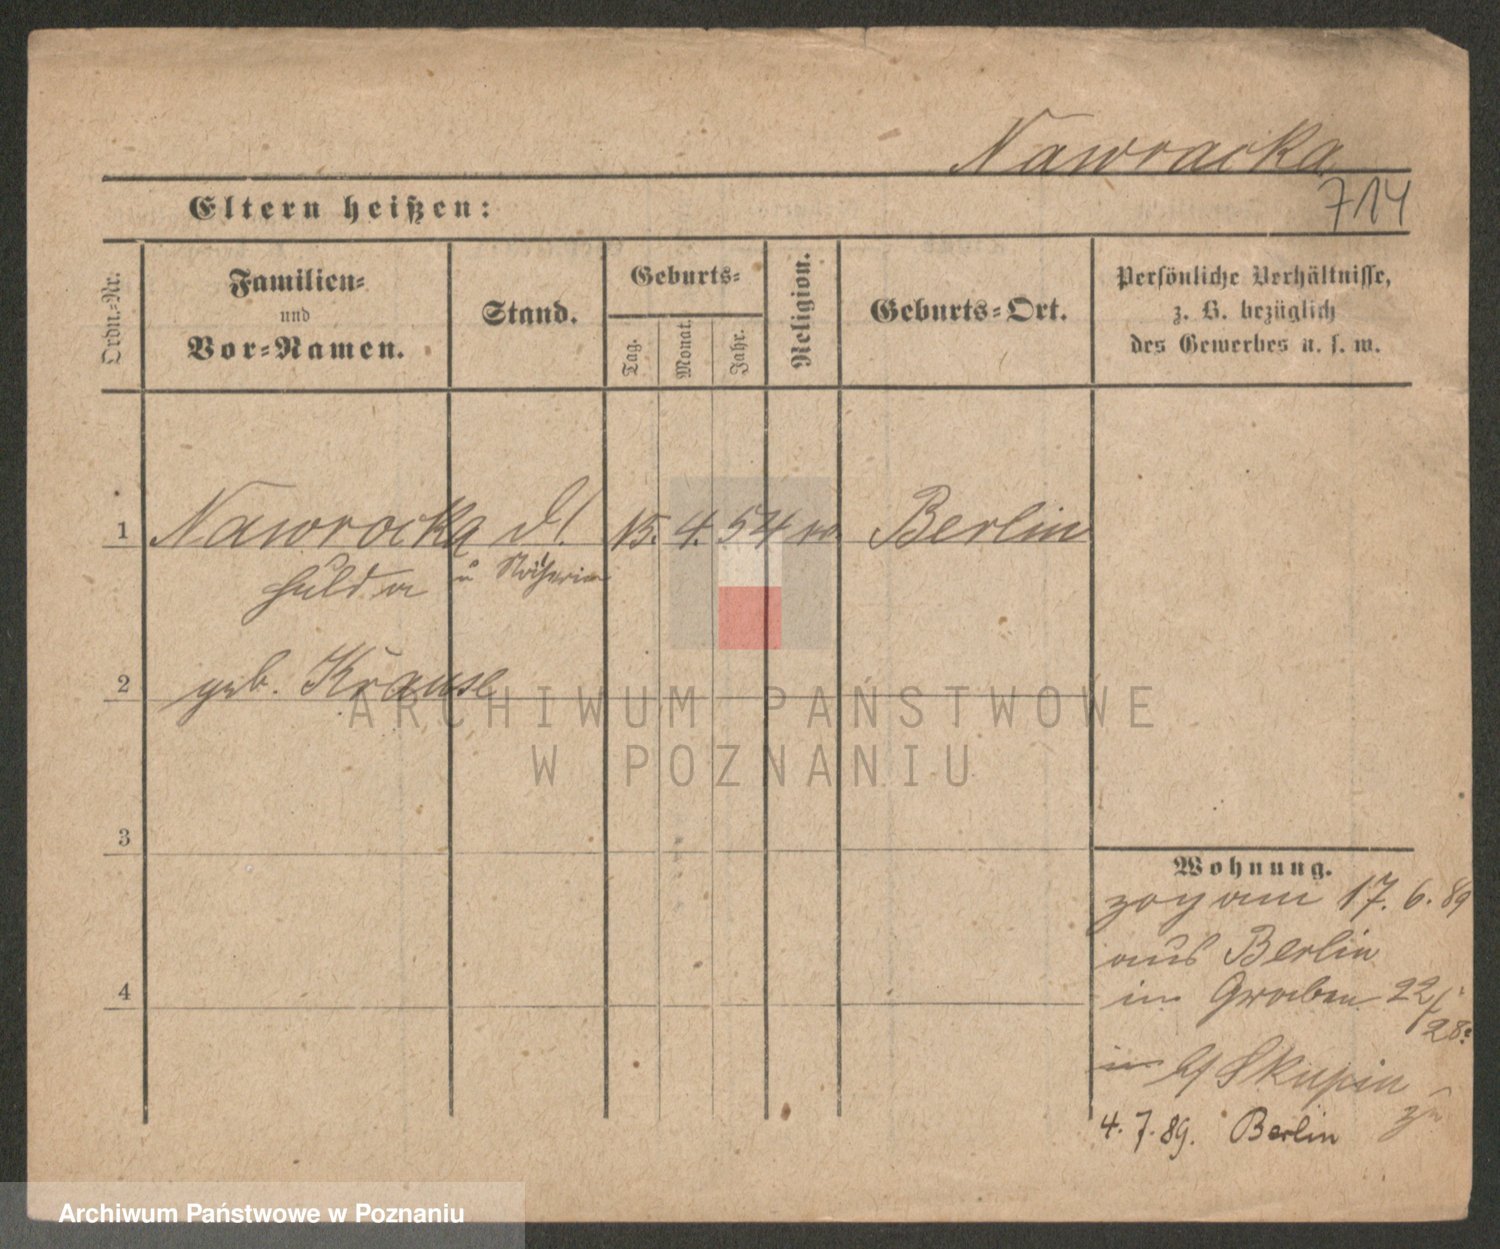 Nawracka
714
Eltern heißen:
Ordn.-Nr.
Familien-
und
Vor-Namen.
Stand.
Geburts-
Tag.
Monat.
Jahr.
Religion.
Geburts-Ort.
Persönliche Verhältnisse,
z. B. bezüglich
des Gewerbes u. s. w.
1 Nawrocka 15. 4. 54 Berlin
Hulda u Näherin
2 geb. Krause
3
4
Wohnung.
zog am 17. 6. 89
aus Berlin
in Graben 22/
28
Skupin
4. 7. 89. Berlin
ARCHIWUM PAŃSTWOWE
W POZNANIU
Archiwum Państwowe w Poznaniu